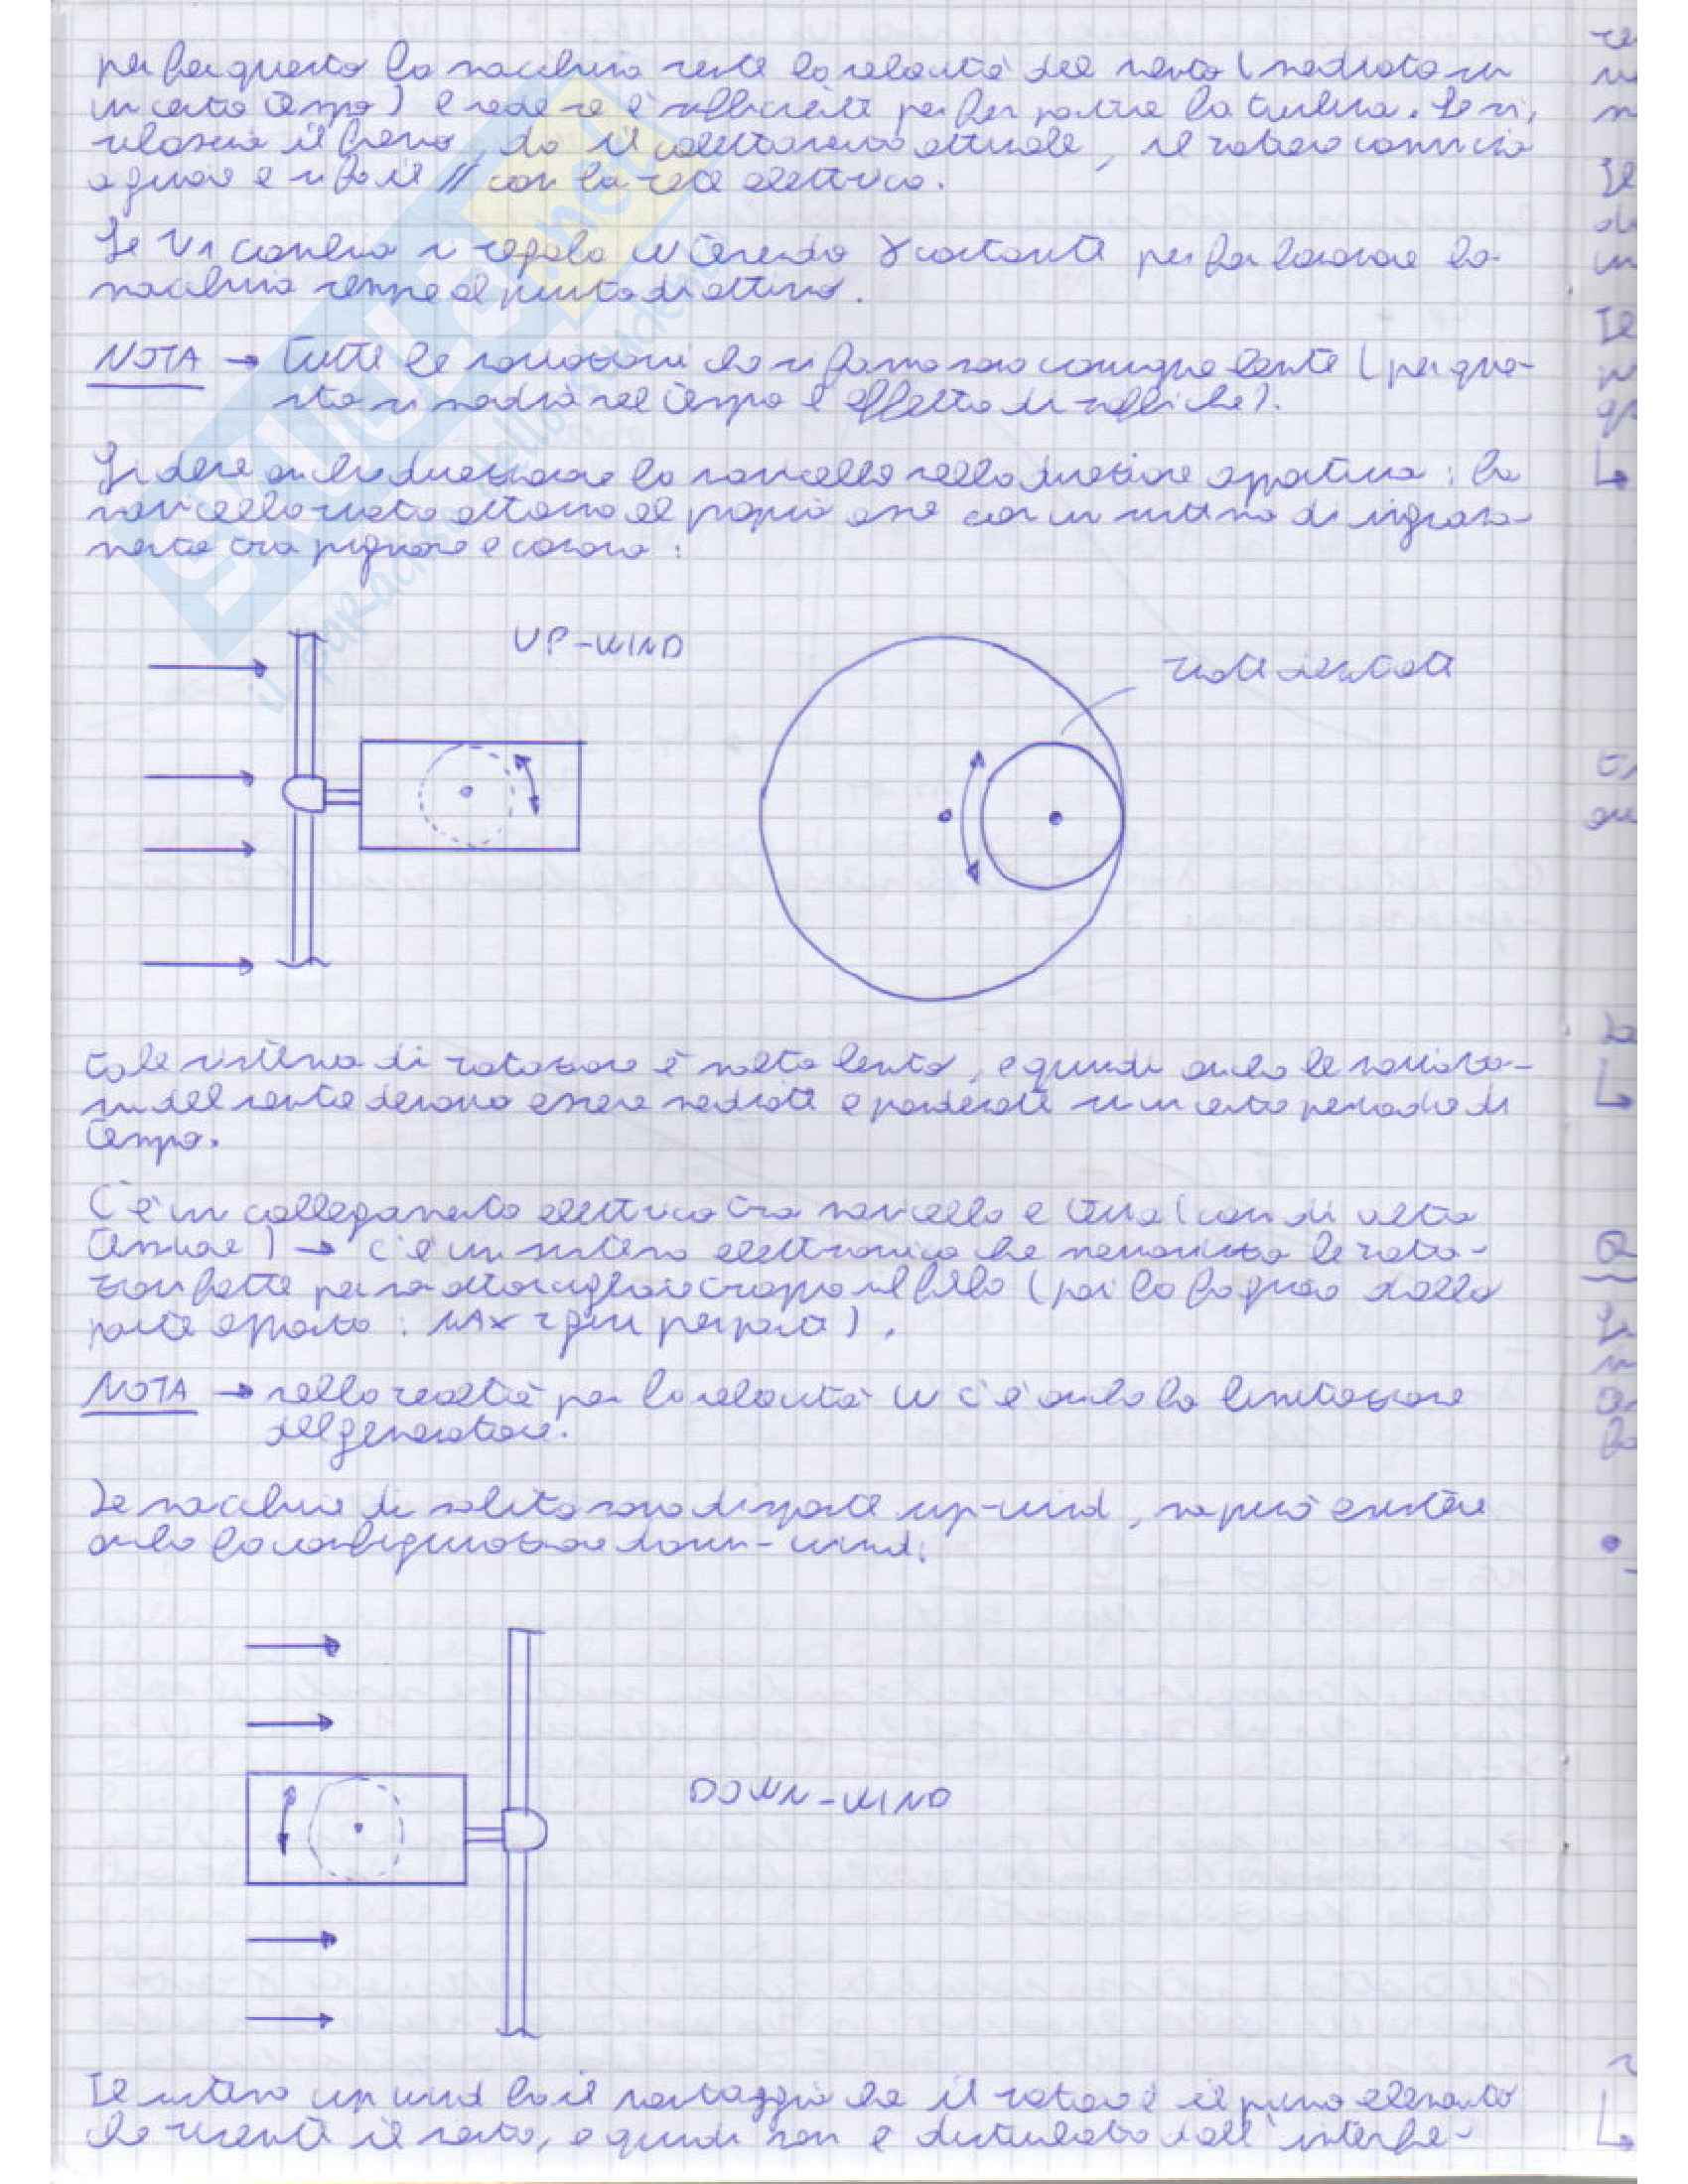 per far questo la macchina sente la velocità del vento (mediata su
un certo tempo) e vede se è sufficiente per far partire la turbina. Se sì,
rilascia il freno, dà il calettamento ottimale, il rotore comincia
a girare e si fa il // con la rete elettrica.
Se V1 cambia si regola w tenendo γ costante per far lavorare la
macchina sempre al punto di ottimo.
NOTA → tutte le variazioni che si fanno sono comunque lente (per que-
sto si media nel tempo l'effetto di raffiche).
Si deve anche direzionare la navicella nella direzione opportuna: la
navicella ruota attorno al proprio asse con un sistema di ingrana-
mento tra pignone e corona:
UP-WIND
ruote dentate
tale sistema di rotazione è molto lento, e quindi anche le variazio-
ni del vento devono essere mediate e ponderate su un certo periodo di
tempo.
C'è un collegamento elettrico tra navicella e terra (cavi di alta
tensione) → c'è un sistema elettronico che memorizza le rota-
zioni fatte per non attorcigliare troppo il filo (poi lo fa girare dalla
parte opposta: MAX 2 giri per parte).
NOTA → nella realtà per la velocità w c'è anche la limitazione
del generatore.
Le macchine di solito sono disposte up-wind, ma può esistere
anche la configurazione down-wind:
DOWN-WIND
Il sistema up wind ha il vantaggio che il rotore è il primo elemento
che risente il vento, e quindi non è disturbato dall'interfe-